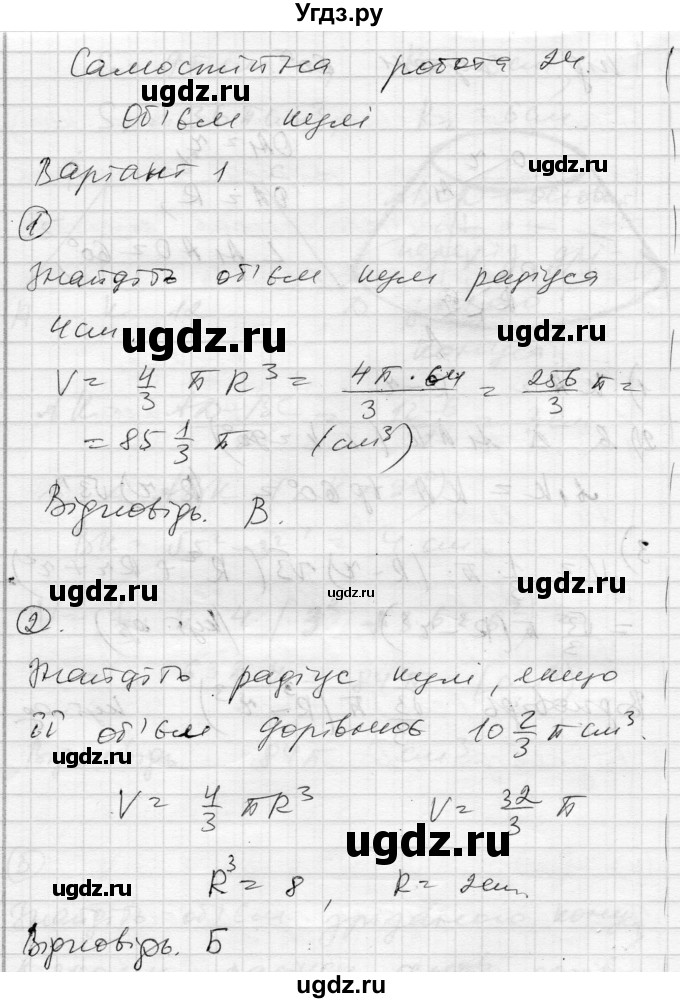 Угдз.ру
Самостійна робота 24.
ugdz.ru
Об'єм кулі
ugdz.ru
Варіант 1
1
Знайдіть об'єм кулі радіуса
4 см.
ugdz.ru
ugdz.ru
V = 4/3 π R³ = 4π·64/3 = 256/3 π =
= 85 1/3 π (см³)
Відповідь. В.
ugdz.ru
ugdz.ru
2.
Знайдіть радіус кулі, якщо
її об'єм дорівнює 10 2/3 π см³.
ugdz.ru
V = 4/3 πR³ V = 32/3 π
ugdz.ru
ugdz.ru
R³ = 8, R = 2 см
Відповідь. Б
ugdz.ru
ugdz.ru